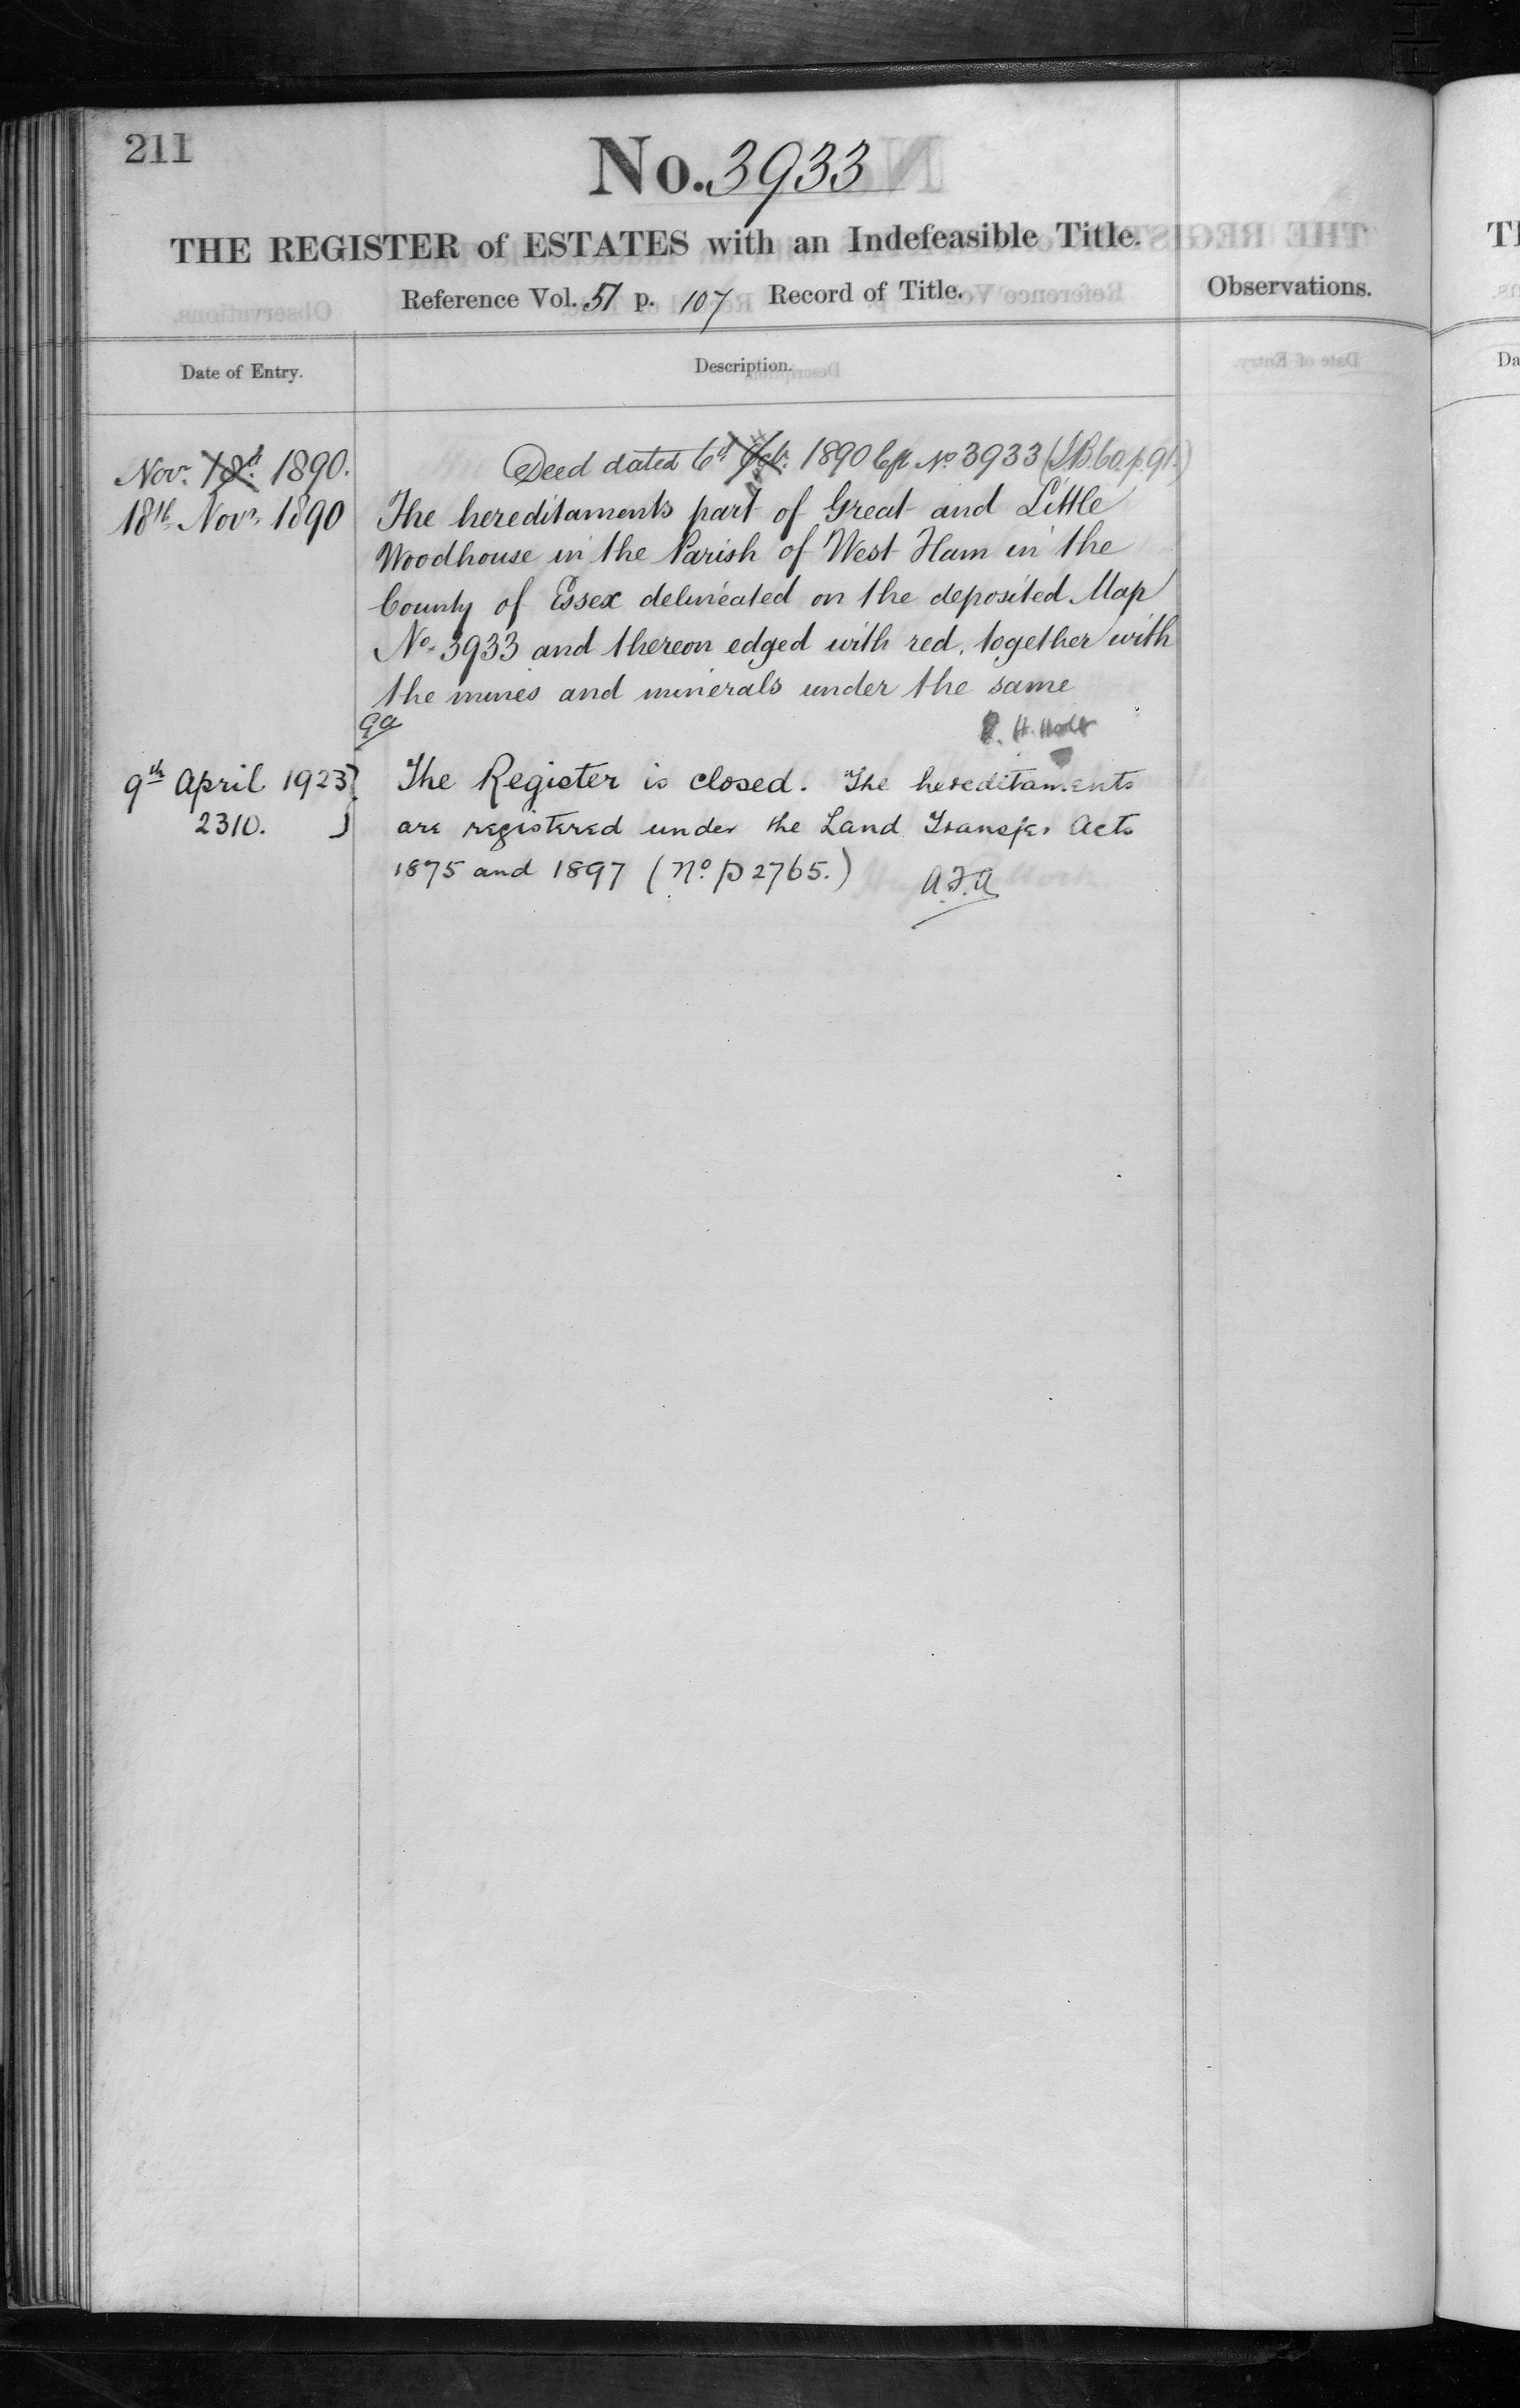 211
No. 3933
THE REGISTER of ESTATES with an Indefeasible Title.
Reference Vol. 51 p. 107 Record of Title.
Observations.
Date of Entry.
Description.
Novr. 18th 1890.
Deed dated 6th Octr. 1890 No 3933 (I.B. 60. p. 91.)
18th Novr. 1890
The hereditaments part of Great and Little
Woodhouse in the Parish of West Ham in the
County of Essex delineated on the deposited Map
No. 3933 and thereon edged with red, together with
the mines and minerals under the same
H. Holt
9th April 1923
2310.
The Register is closed. The hereditaments
are registered under the Land Transfer Acts
1875 and 1897 (No. P 2765.)
A.F.A